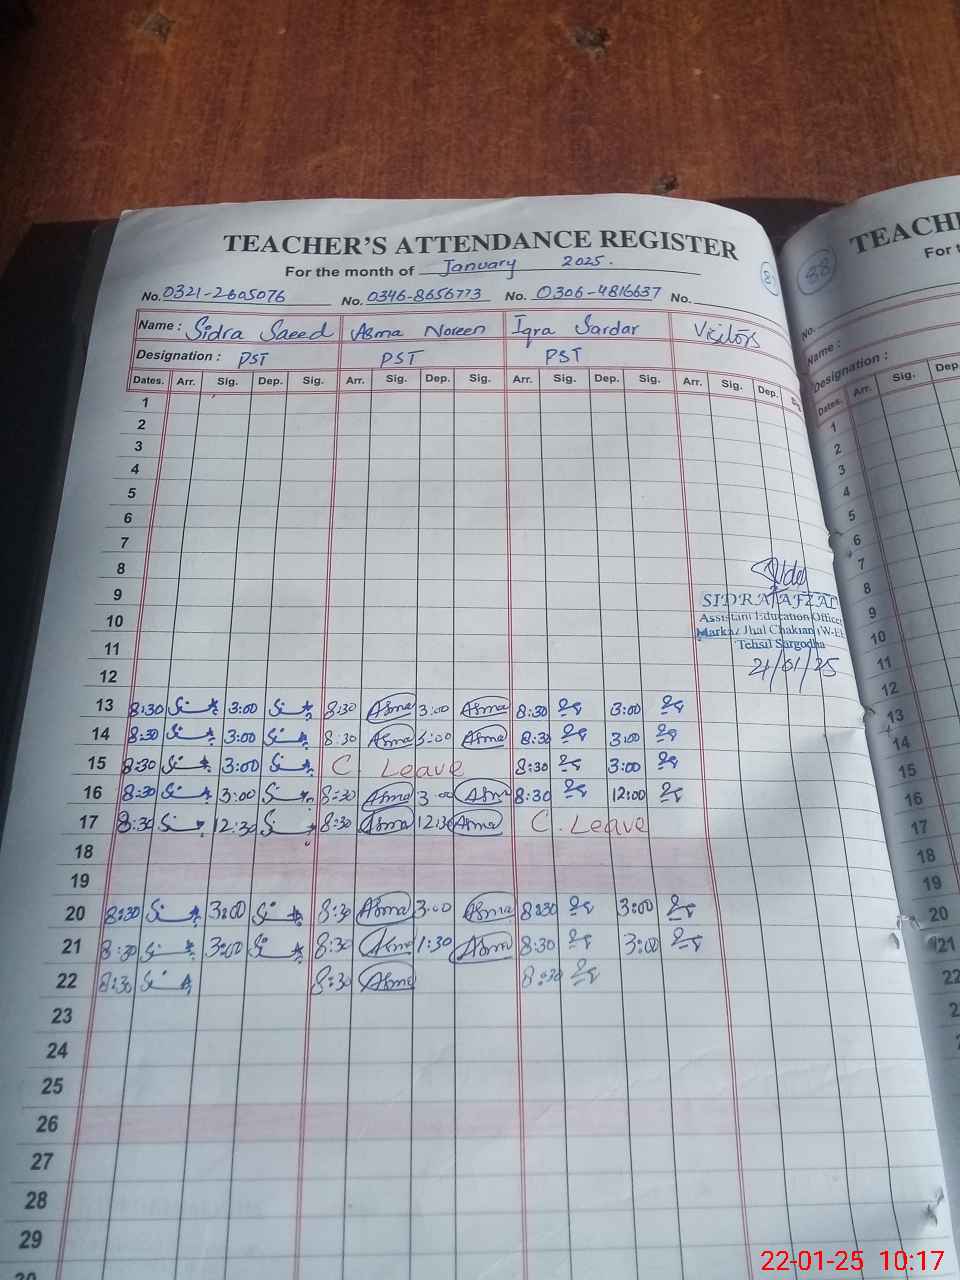 TEACHER'S ATTENDANCE REGISTER
For the month of January 2025.
No. 0321-2605076 No. 0346-8656773 No. 0306-4816637 No.
Name : Sidra Saeed Asma Noreen Iqra Sardar Visitors
Designation : PST PST PST
Dates. Arr. Sig. Dep. Sig. Arr. Sig. Dep. Sig. Arr. Sig. Dep. Sig. Arr. Sig. Dep.
1
2
3
4
5
6
7
8
9 SIDRA AFZAL
10 Assistant Education Officer
Markaz Jhal Chakian (W-E)
11 Tehsil Sargodha
12 21/01/25
13 8:30 3:00 8:30 Asma 3:00 Asma 8:30 3:00
14 8:30 3:00 8:30 Asma 3:00 Asma 8:30 3:00
15 8:30 3:00 C. Leave 8:30 3:00
16 8:30 3:00 8:30 Asma 3:00 Asma 8:30 12:00
17 8:30 12:30 8:30 Asma 12:30 Asma C. Leave
18
19
20 8:30 3:00 8:30 Asma 3:00 Asma 8:30 3:00
21 8:30 3:00 8:30 Asma 1:30 Asma 8:30 3:00
22 8:30 8:30 Asma 8:30
23
24
25
26
27
28
29
30
88
TEACH
For t
No.
Name :
Designation :
Dates. Arr. Sig. Dep.
1
2
3
4
5
6
7
8
9
10
11
12
13
14
15
16
17
18
19
20
21
22
22-01-25 10:17